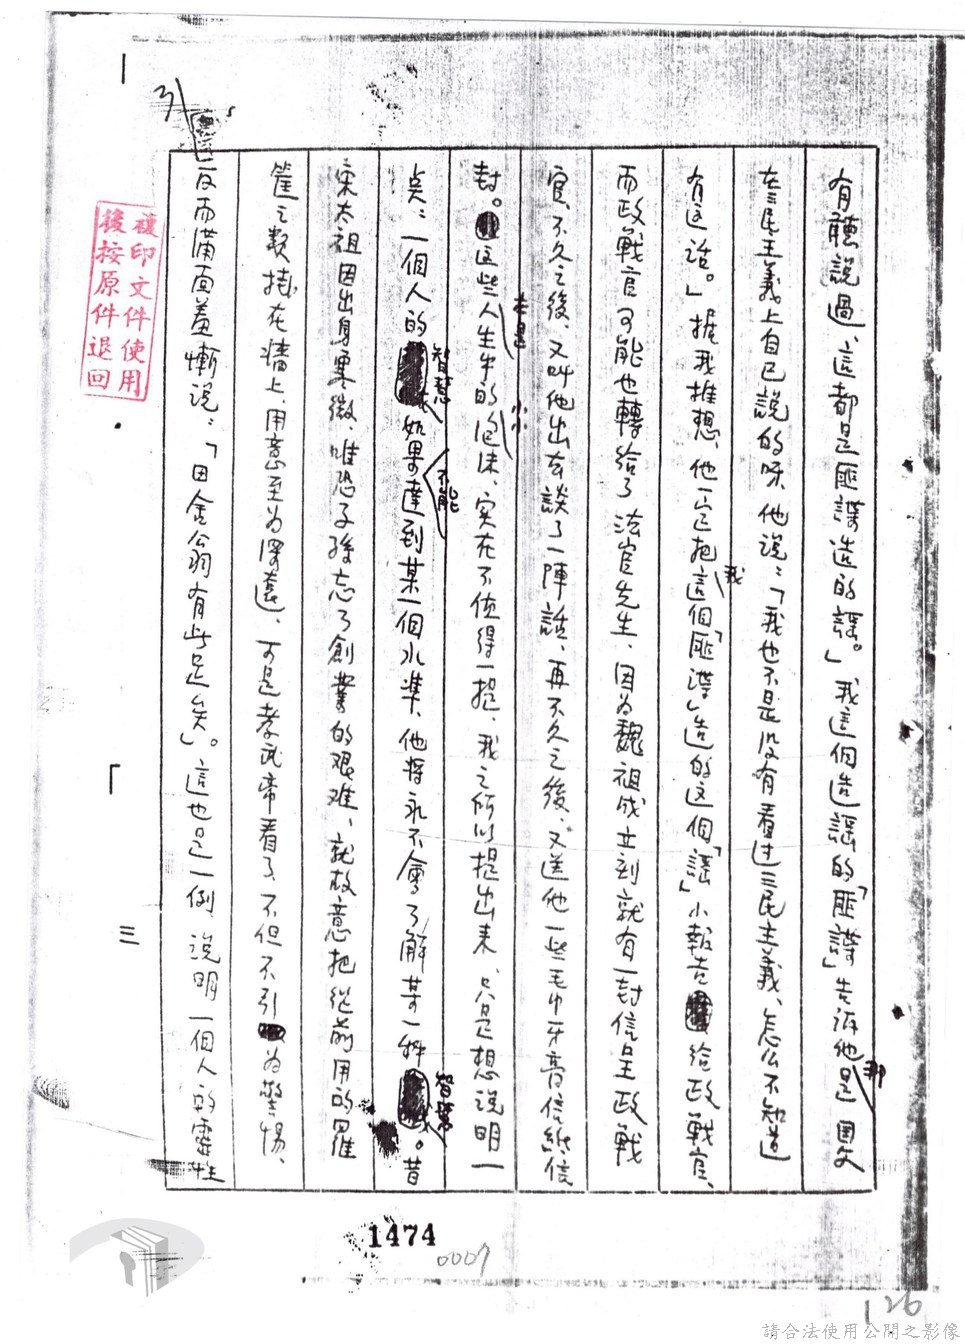 有聽說過、這都是匪諜造的謠。」我這個造謠的「匪諜」告訴他那是國父
在三民主義上自己說的呀他說：「我也不是沒有看过三民主義、怎么不知道
有这話。」据我推想、他一定把我這個「匪諜」造的这個「謠」小報告給政戰官、
而政戰官可能也轉給了法官先生、因为魏祖成立刻就有一封信呈政戰
官、不久之後、又叫他出去談了一陣話、再不久之後、又送他一些毛巾牙膏信紙信
封。這些本是人生中的小小泡沫、实在不值得一提、我之所以提出来、只是想說明一
点：一個人的智慧如果不能達到某一個水準、他将永不會了解某一种智慧。昔
宋太祖因出身寒微、唯恐子孫忘了創業的艰难、就故意把從前用的羅
筐之類掛在墙上、用意至为深遠、可是孝武帝看了、不但不引为警惕、
反而满面羞慚说：「田舍翁有此足矣」。這也是一例、说明一個人的靈性
複印文件使用
後按原件退回
三
1474
0007
126
請合法使用公開之影像